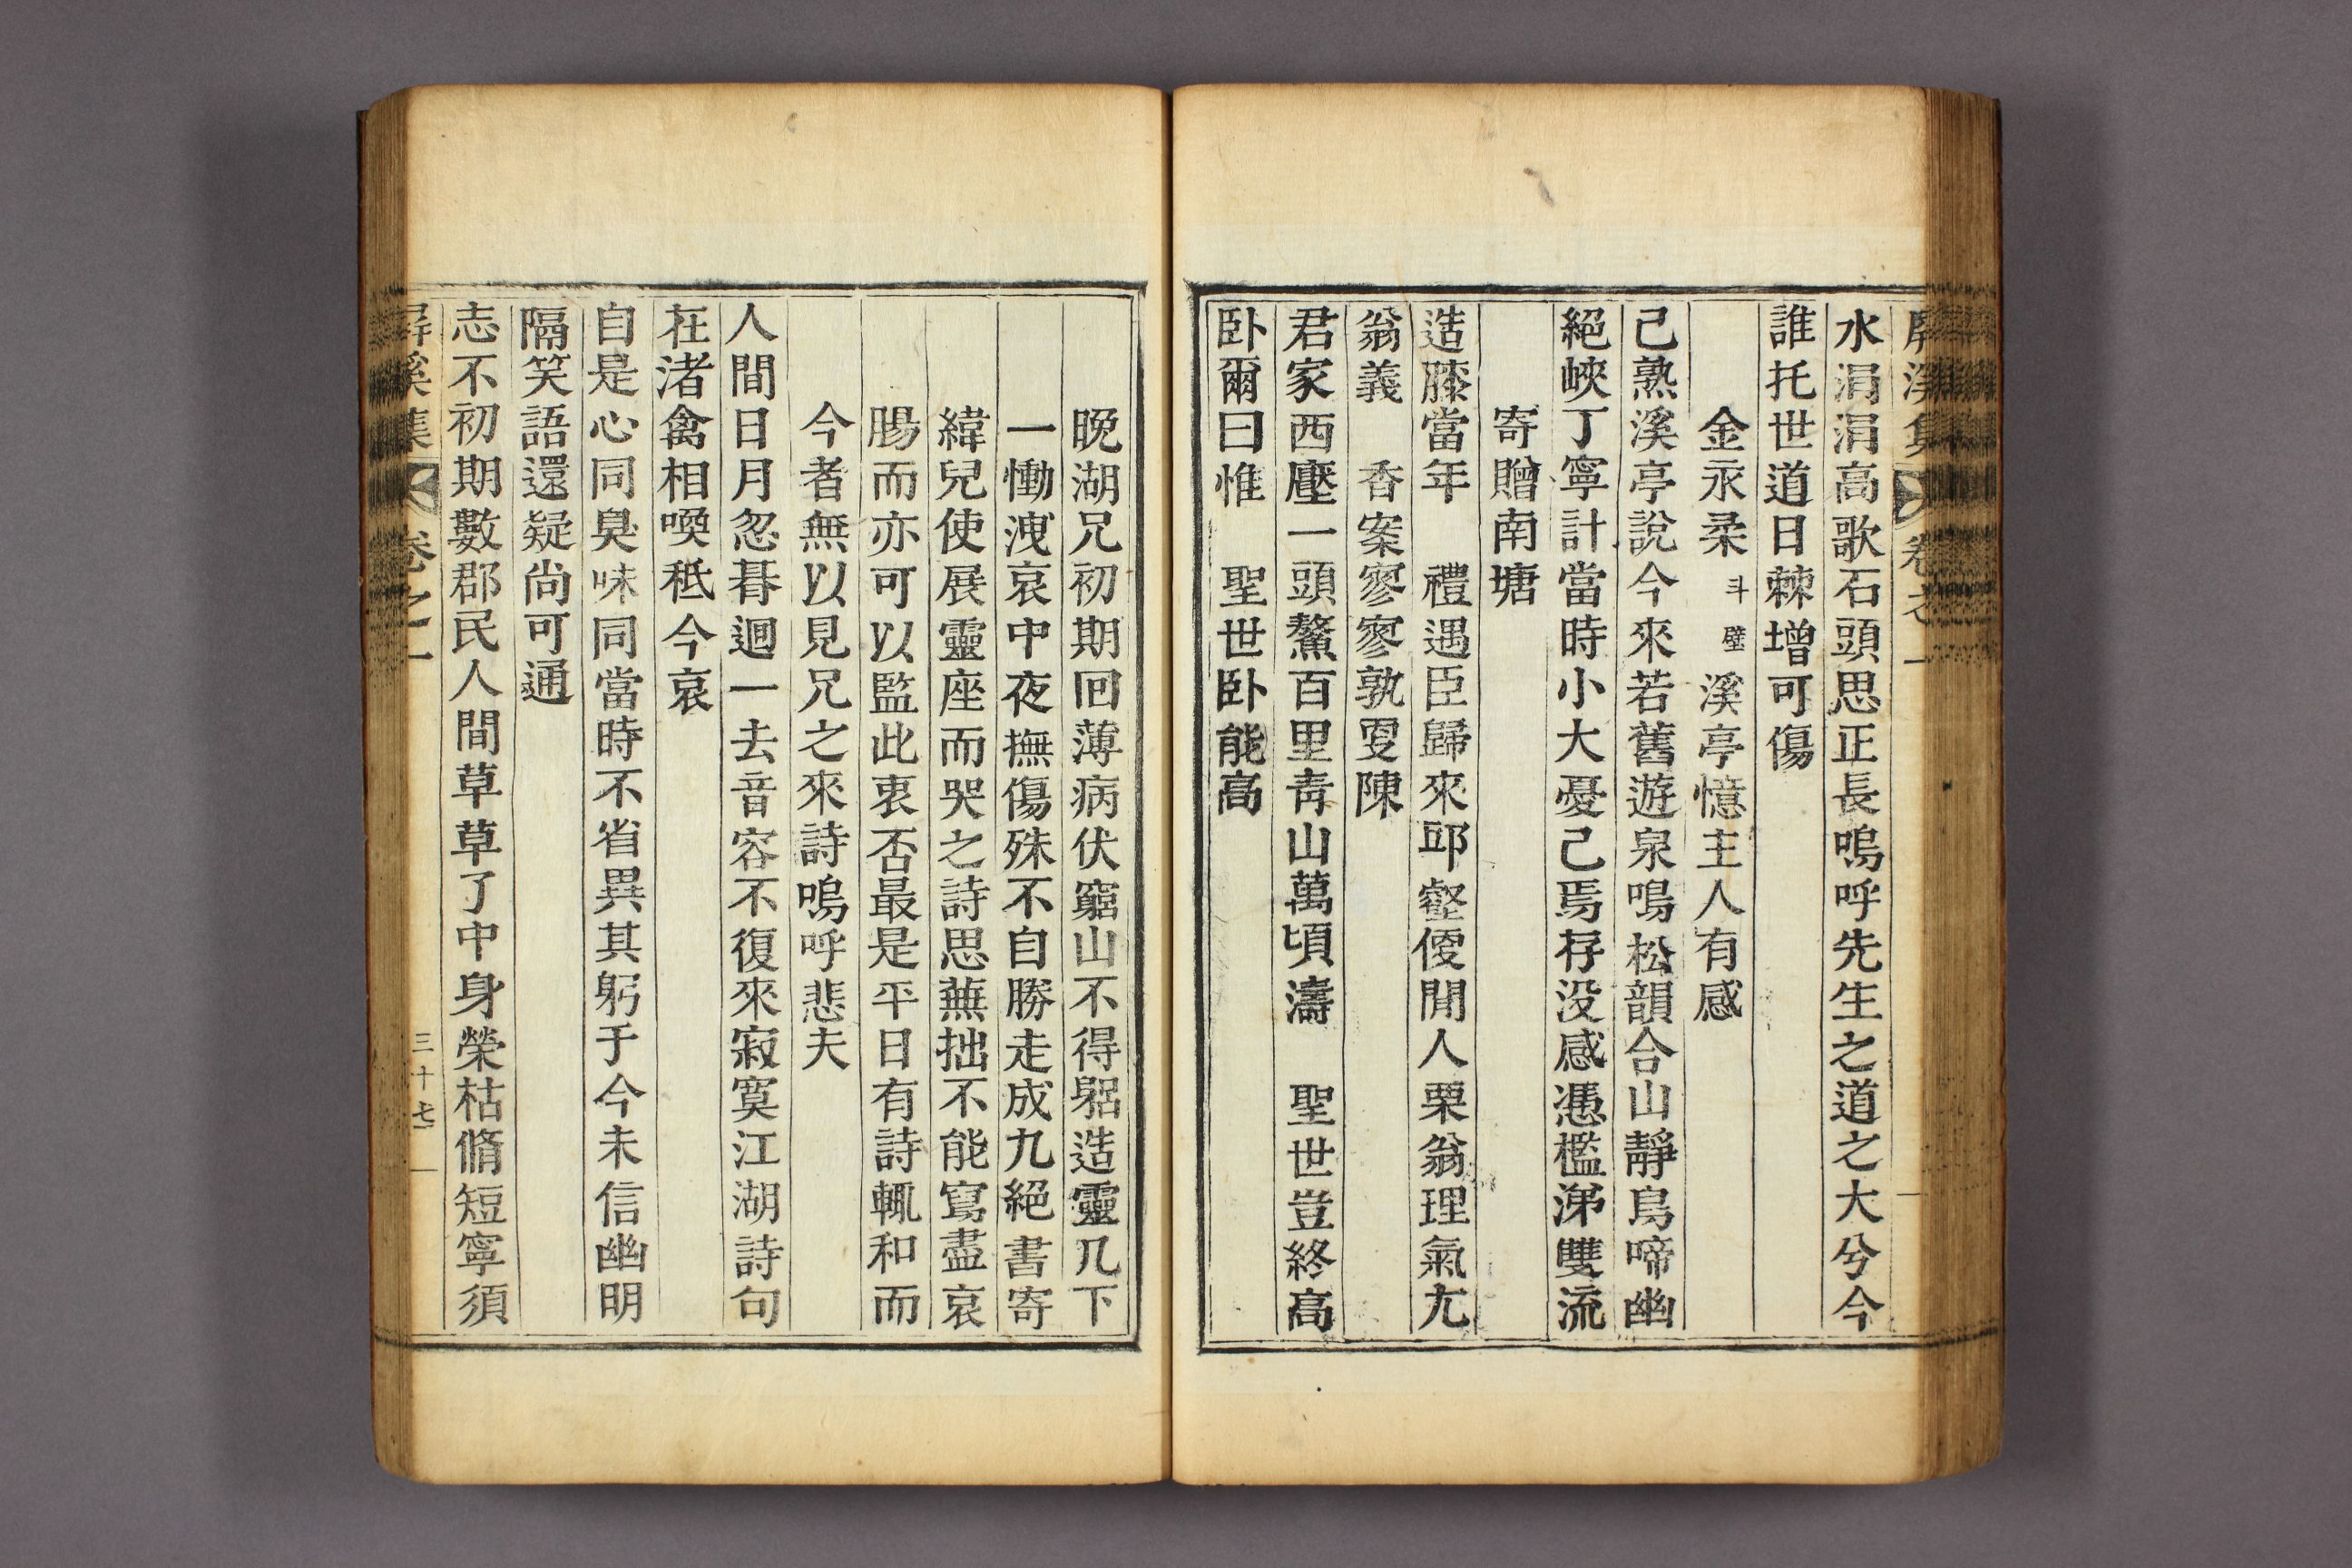 屏溪集 卷之一
水涓涓高歌石頭思正長嗚呼先生之道之大兮今
誰托世道日棘增可傷
金永柔斗璧溪亭憶主人有感
己熟溪亭說今來若舊遊泉鳴松韻合山靜鳥啼幽
絕峽丁寧計當時小大憂己焉存沒感憑檻涕雙流
寄贈南塘
造膝當年 禮遇臣歸來邱壑便閒人栗翁理氣尤
翁義 香案寥寥孰更陳
君家西壓一頭鰲百里靑山萬頃濤 聖世豈終高
臥爾曰惟 聖世臥能高
晩湖兄初期回薄病伏窮山不得躬造靈几下
一慟洩哀中夜撫傷殊不自勝走成九絕書寄
緯兒使展靈座而哭之詩思蕪拙不能寫盡哀
腸而亦可以監此衷否最是平日有詩輒和而
今者無以見兄之來詩嗚呼悲夫
人間日月忽朞廻一去音容不復來寂寞江湖詩句
在渚禽相喚秪今哀
自是心同臭味同當時不省異其躬于今未信幽明
隔笑語還疑尙可通
志不初期數郡民人間草草了中身榮枯脩短寧須
屏溪集 卷之一 三十七